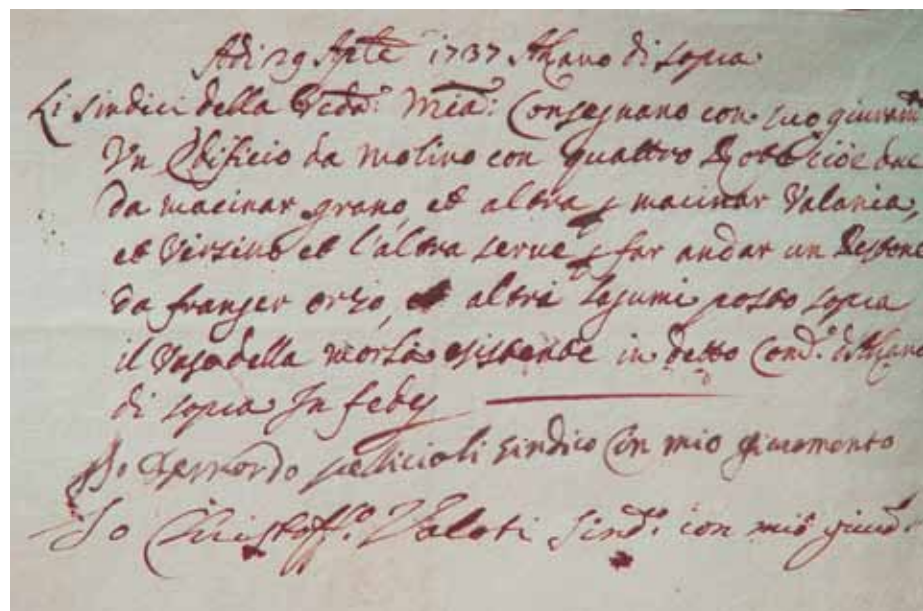 Adi 29 Aple 1737 Alzano di sopra
Li sindici della Vicda: Mia: Consegnano con suo giuram
Un Edificio da molino con quattro Rode cioè due
da macinar grano, et altra p macinar Valania,
et Verzino et l'altra serue p far andar un Pestone
da franger orzo, et altri legumi posto sopra
il Vaso della morla esistente in detto Cond.e d'Alzano
di sopra In fede
Io pellicioli sindico Con mio giuramento
Io Christoff.o Valoti sind.o con mio giurd.